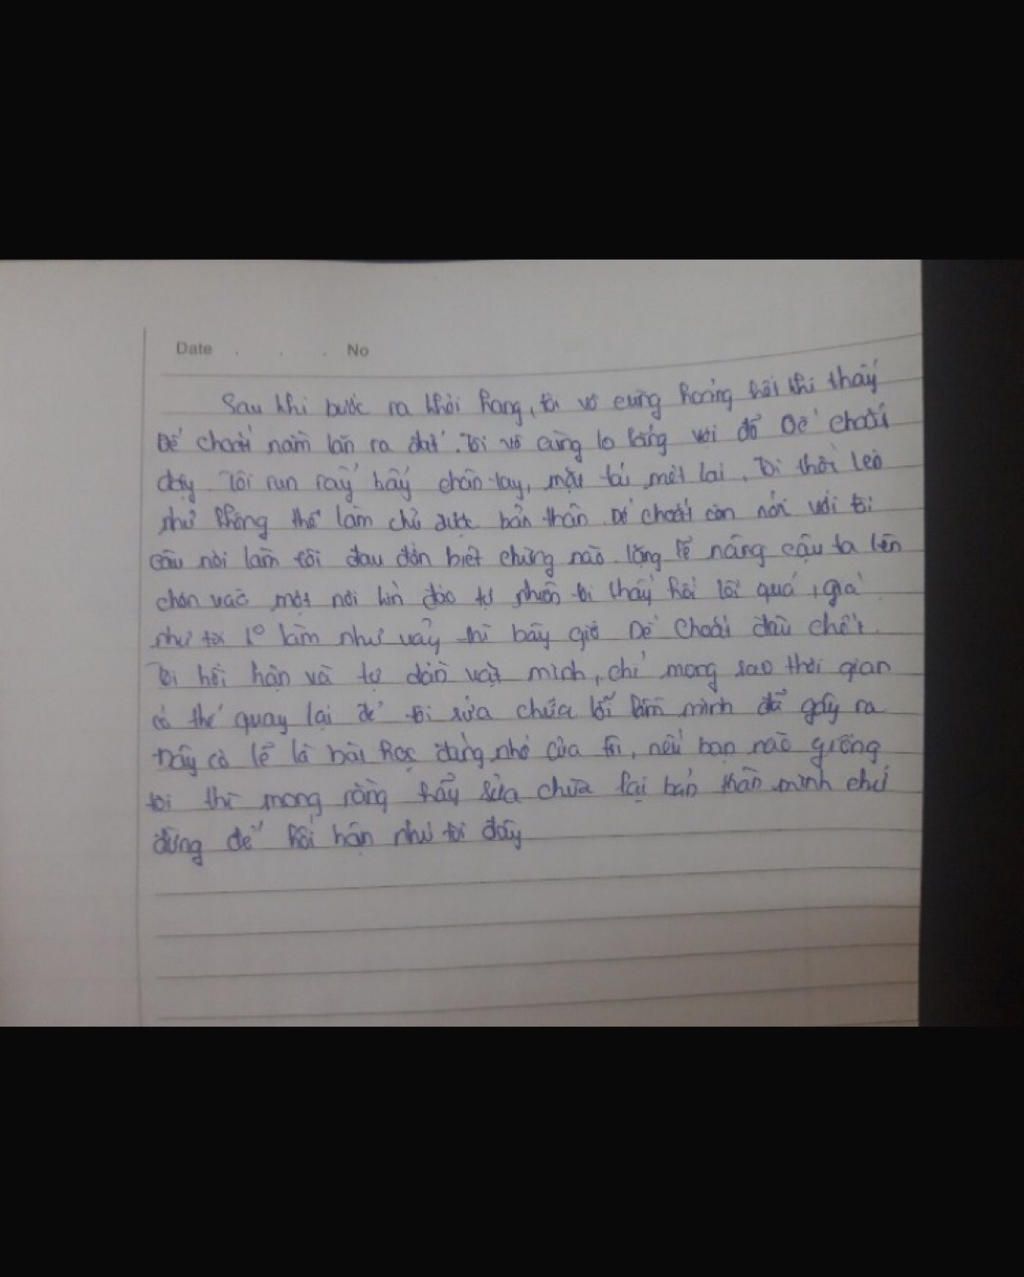 Date . . . No
Sau khi bước ra khỏi hang, tôi vô cùng hoảng hốt khi thấy
Dế choắt nằm lăn ra đất. Tôi vô cùng lo lắng vội đỡ Dế choắt
dậy. Tôi run rẩy bẩy chân tay, mặt tái mét lại. Tôi thốt
như không thể làm chủ được bản thân. Dế choắt còn nói với tôi
câu nói làm tôi đau đớn biết chừng nào. lặng lẽ nâng cậu ta lên
chôn vào một nơi kín đáo tự nhiên tôi thấy hối lỗi quá, giá
như tôi k° làm như vậy thì bây giờ Dế Choắt đâu chết.
Tôi hối hận và tự dằn vặt mình, chỉ mong sao thời gian
có thể quay lại để tôi sửa chữa lỗi lầm mình đã gây ra
Đây có lẽ là bài học đáng nhớ của tôi, nếu bạn nào giống
tôi thì mong rằng hãy sửa chữa lại bản thân mình chứ
đừng để hối hận như tôi đây